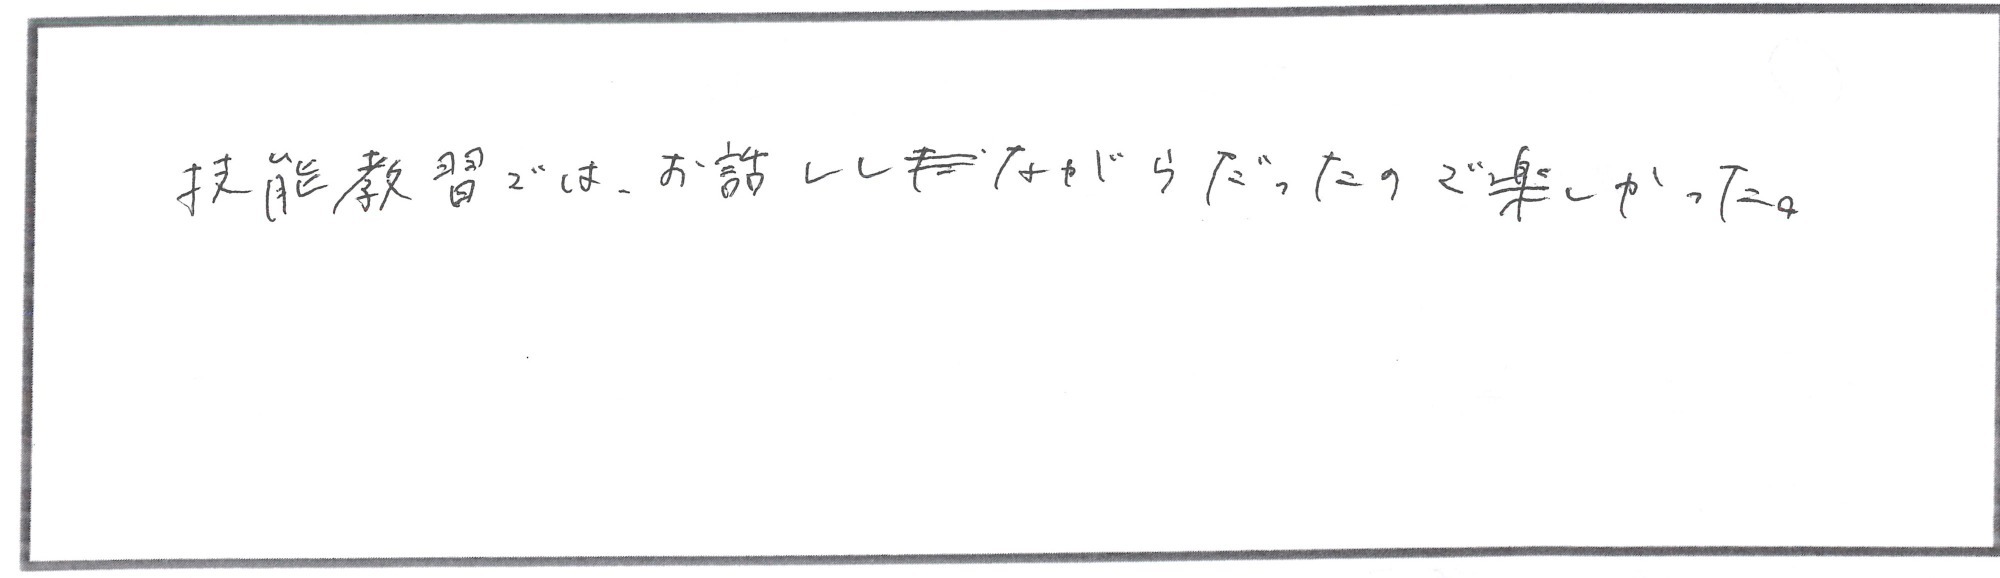 技能教習では、お話ししながらだったので楽しかった。